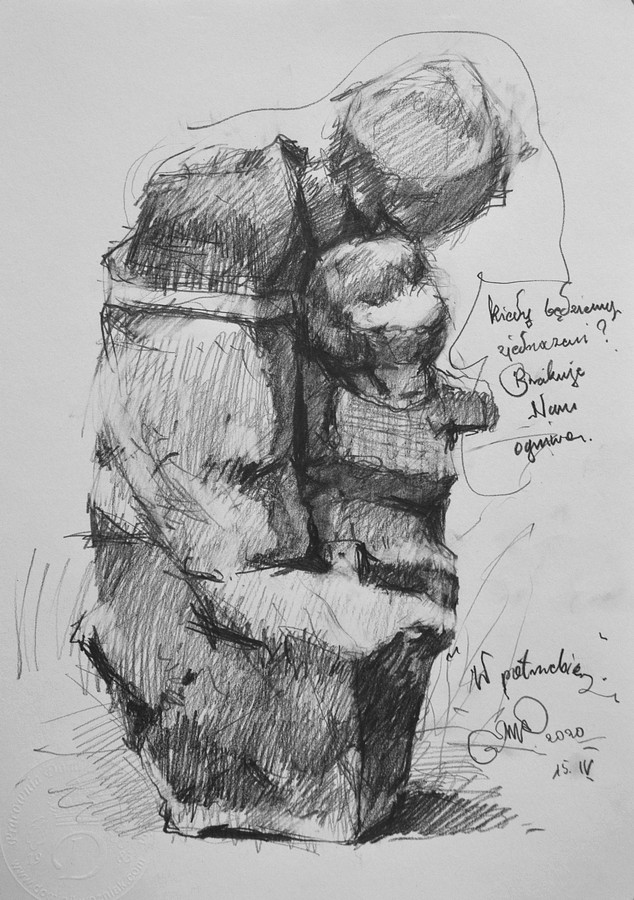 kiedy będziemy
zjednazani?
Brakuje
Nam
ogniwa.
"W potrzebie"
2020
15. IV